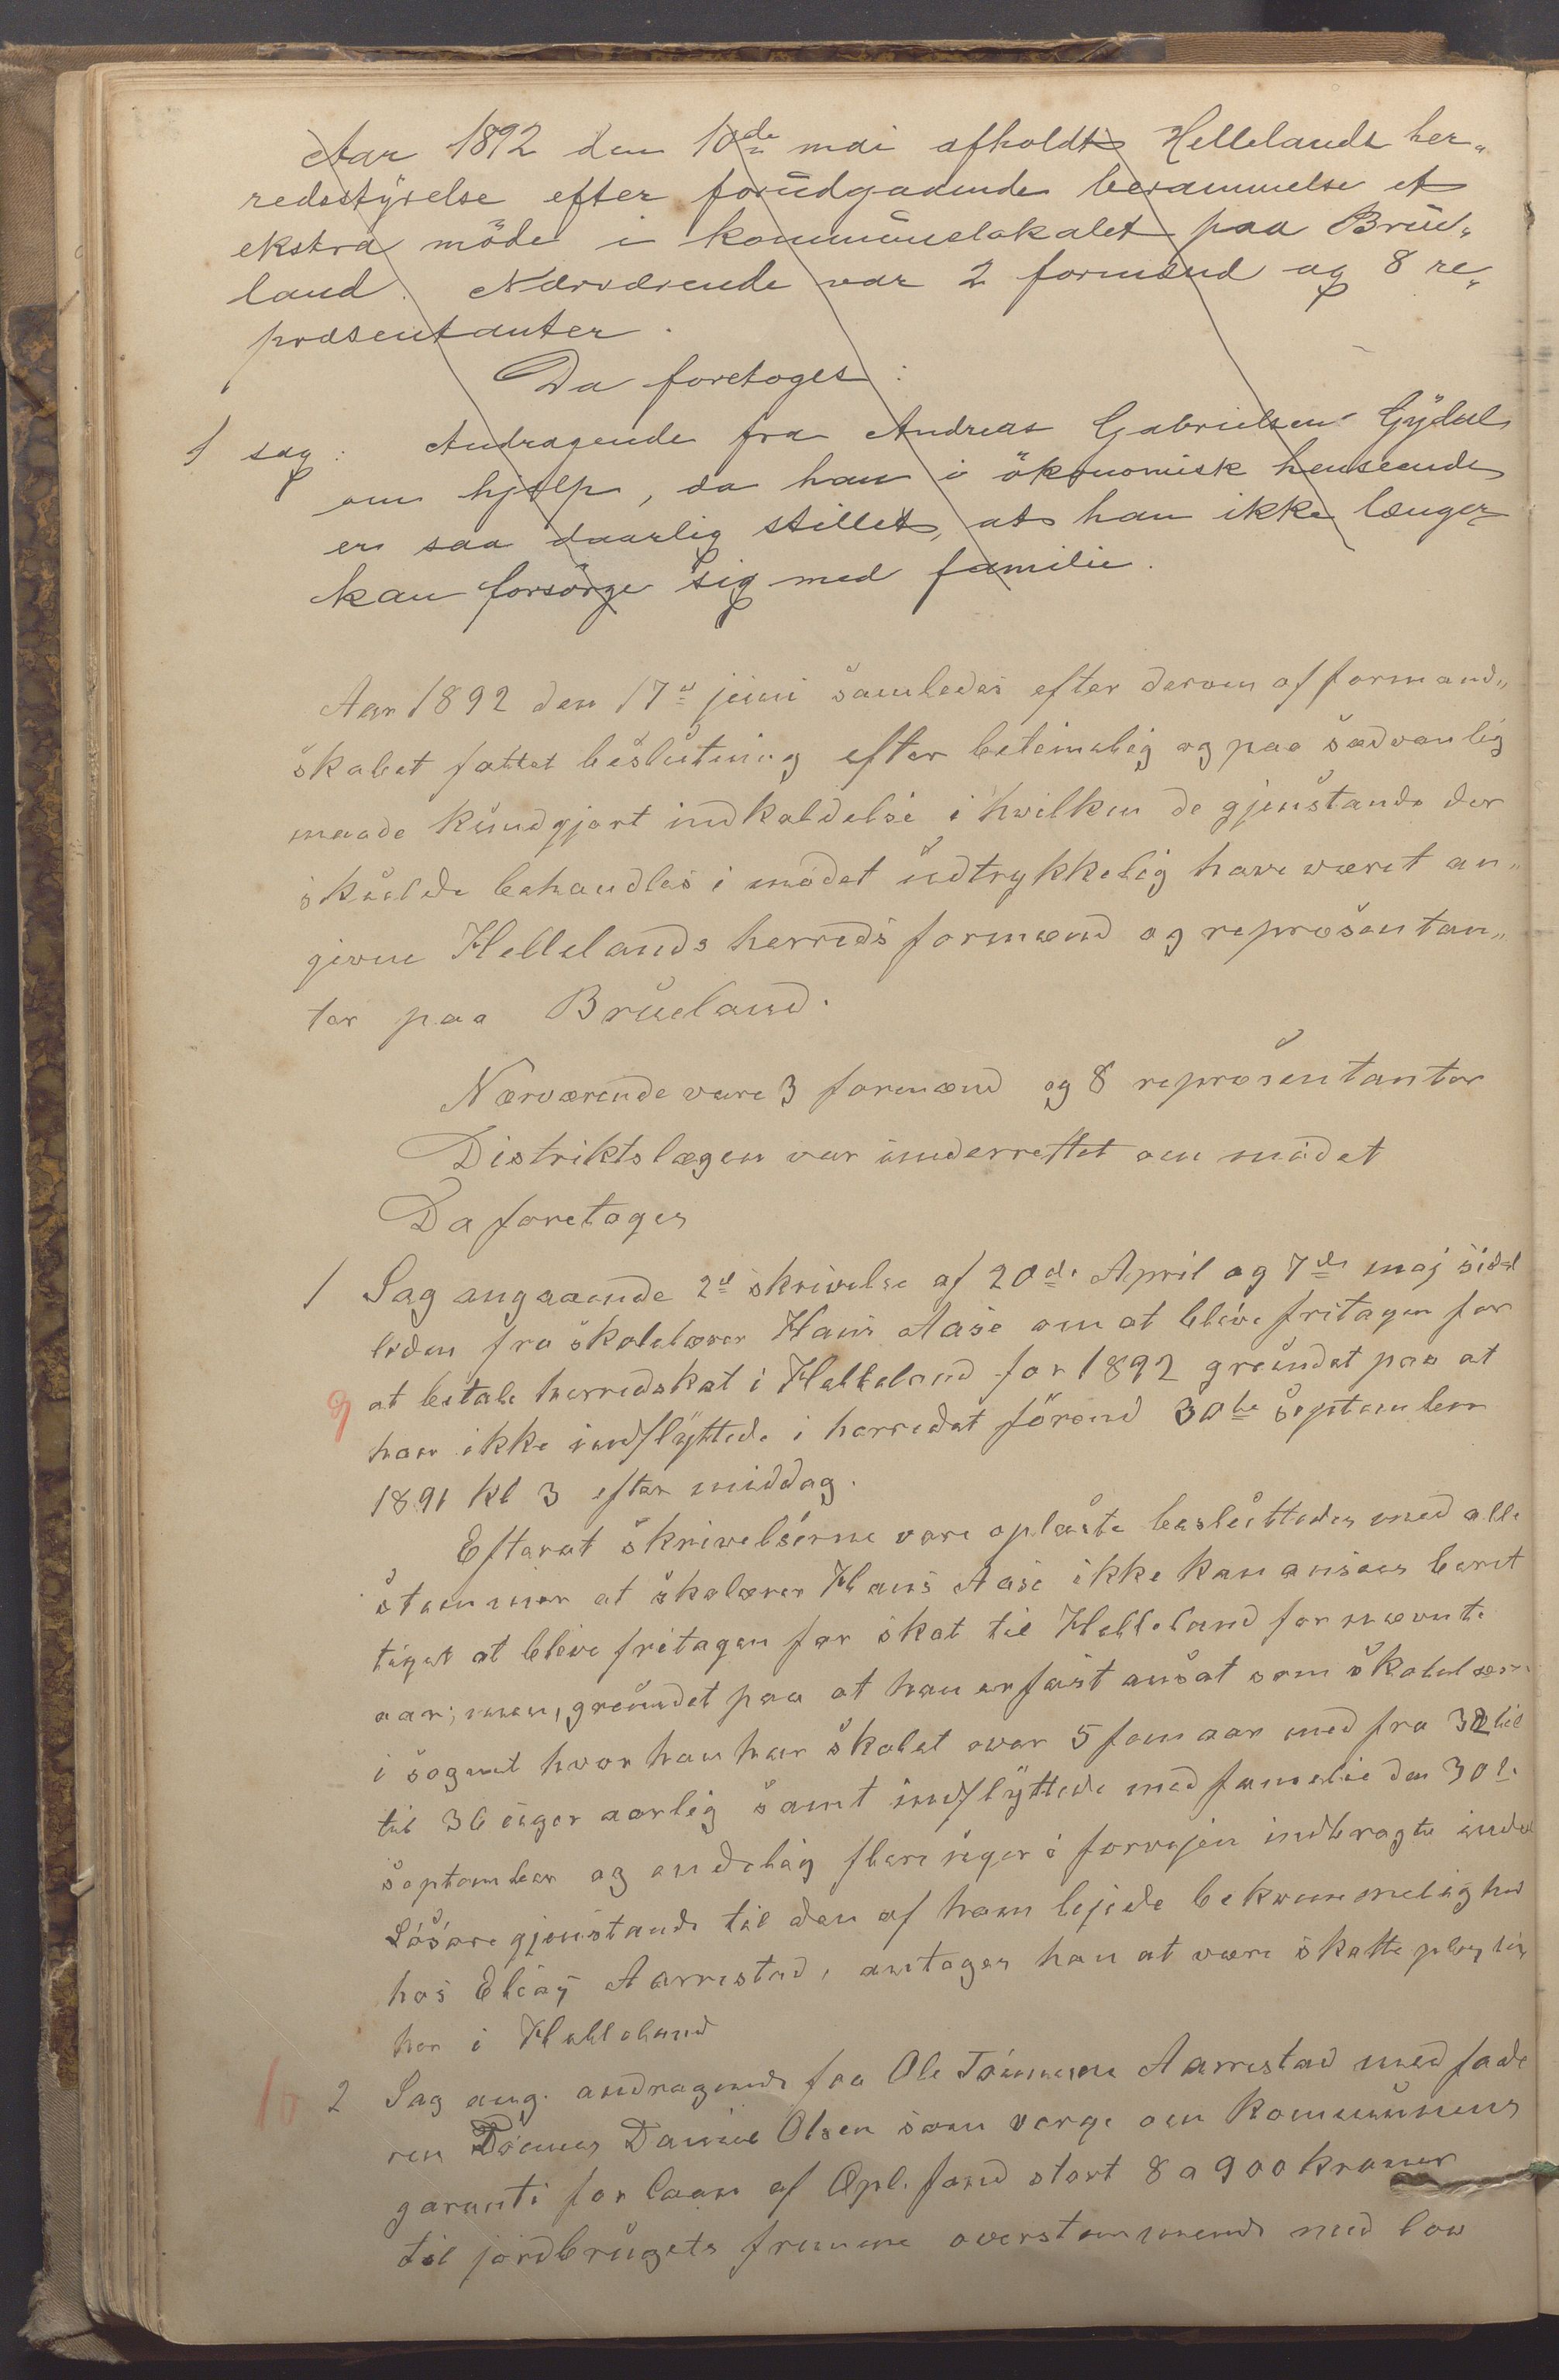 Aar 1892 den 10de mai afholdt Hellelands her„
redsstyrelse efter forudgaaende berammelse et
ekstra möde i kommunelokalet paa Brue„
land. Nærværende var 2 formænd og 8 re„
præsentanter.
Da foretoges:
1 sag: Andragende fra Andreas Gabrielsen Gydal
om hjælp, da han i ökonomisk henseende
er saa daarlig stillet, at han ikke længer
kan forsörge sig med familie.
Aar 1892 den 17de juni samledes efter derom af formand„
skabet fattet beslutning efter betimelig og paa sædvanlig
maade kundgjort indkaldelse i hvilken de gjenstande der
skulde behandles i mödet udtrykkelig have været an„
givne Hellelands herreds formænd og repræsentan„
ter paa Brueland.
Nærværende vare 3 formænd og 8 repræsentanter
Distriktslægen var underrettet om mödet
Da foretoges
1 Sag angaaende 2de skrivelse af 20de April og 7de maj sidst
leden fra skolelærer Hans Aase om at blive fritagen for
9 at betale herredskat i Helleland for 1892 grundet paa at
han ikke indflyttede i herredet förend 30te September
1891 kl 3 efter middag.
Efterat skrivelserne vare oplæste besluttedes med alle
stemmer at skolærer Hans Aase ikke kan ansees beret
tiget at blive fritagen for skat til Helleland for nævnte
aar; men, grundet paa at han er fast ansat som skolelærer
i sognet hvor han har skolet over 5 fem aar med fra 32 til
til 36 uger aarlig samt indflyttede med familie den 30te
September og endelig flere uger i forvejen indbragte endel
Lösöre gjenstande til den af ham lejede bekvemmelighed
hos Elias Aarrestad, antages han at være skattepligtig
her i Helleland
10 2 Sag ang. andragende fra Ole Tönnesen Aarrestad med fade
ren Tönnes Daniel Olsen som verge om Kommunens
garanti for laan af Opl. fond stort 8 a 900 kroner
til jordbrugets fremme overstemmende med lov